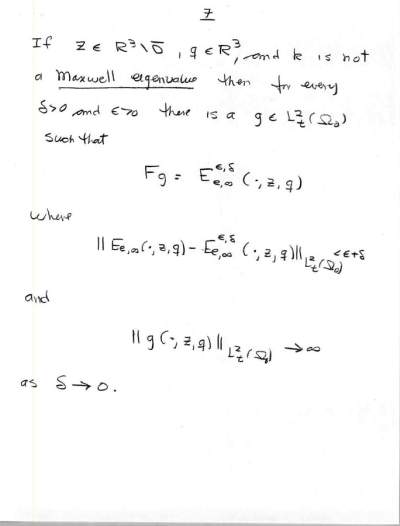 7
If z ∈ R³\D̄, q ∈ R³, and k is not
a Maxwell eigenvalue then for every
δ>0 and ϵ>0 there is a g ∈ L²ₜ(Ω₀)
such that
Fg = E^{ϵ,δ}_{e,∞}(·, z, q)
where
‖E_{e,∞}(·, z, q) − E^{ϵ,δ}_{e,∞}(·, z, q)‖_{L²ₜ(Ω₀)} < ϵ+δ
and
‖g(·, z, q)‖_{L²ₜ(Ω₀)} → ∞
as δ → 0.